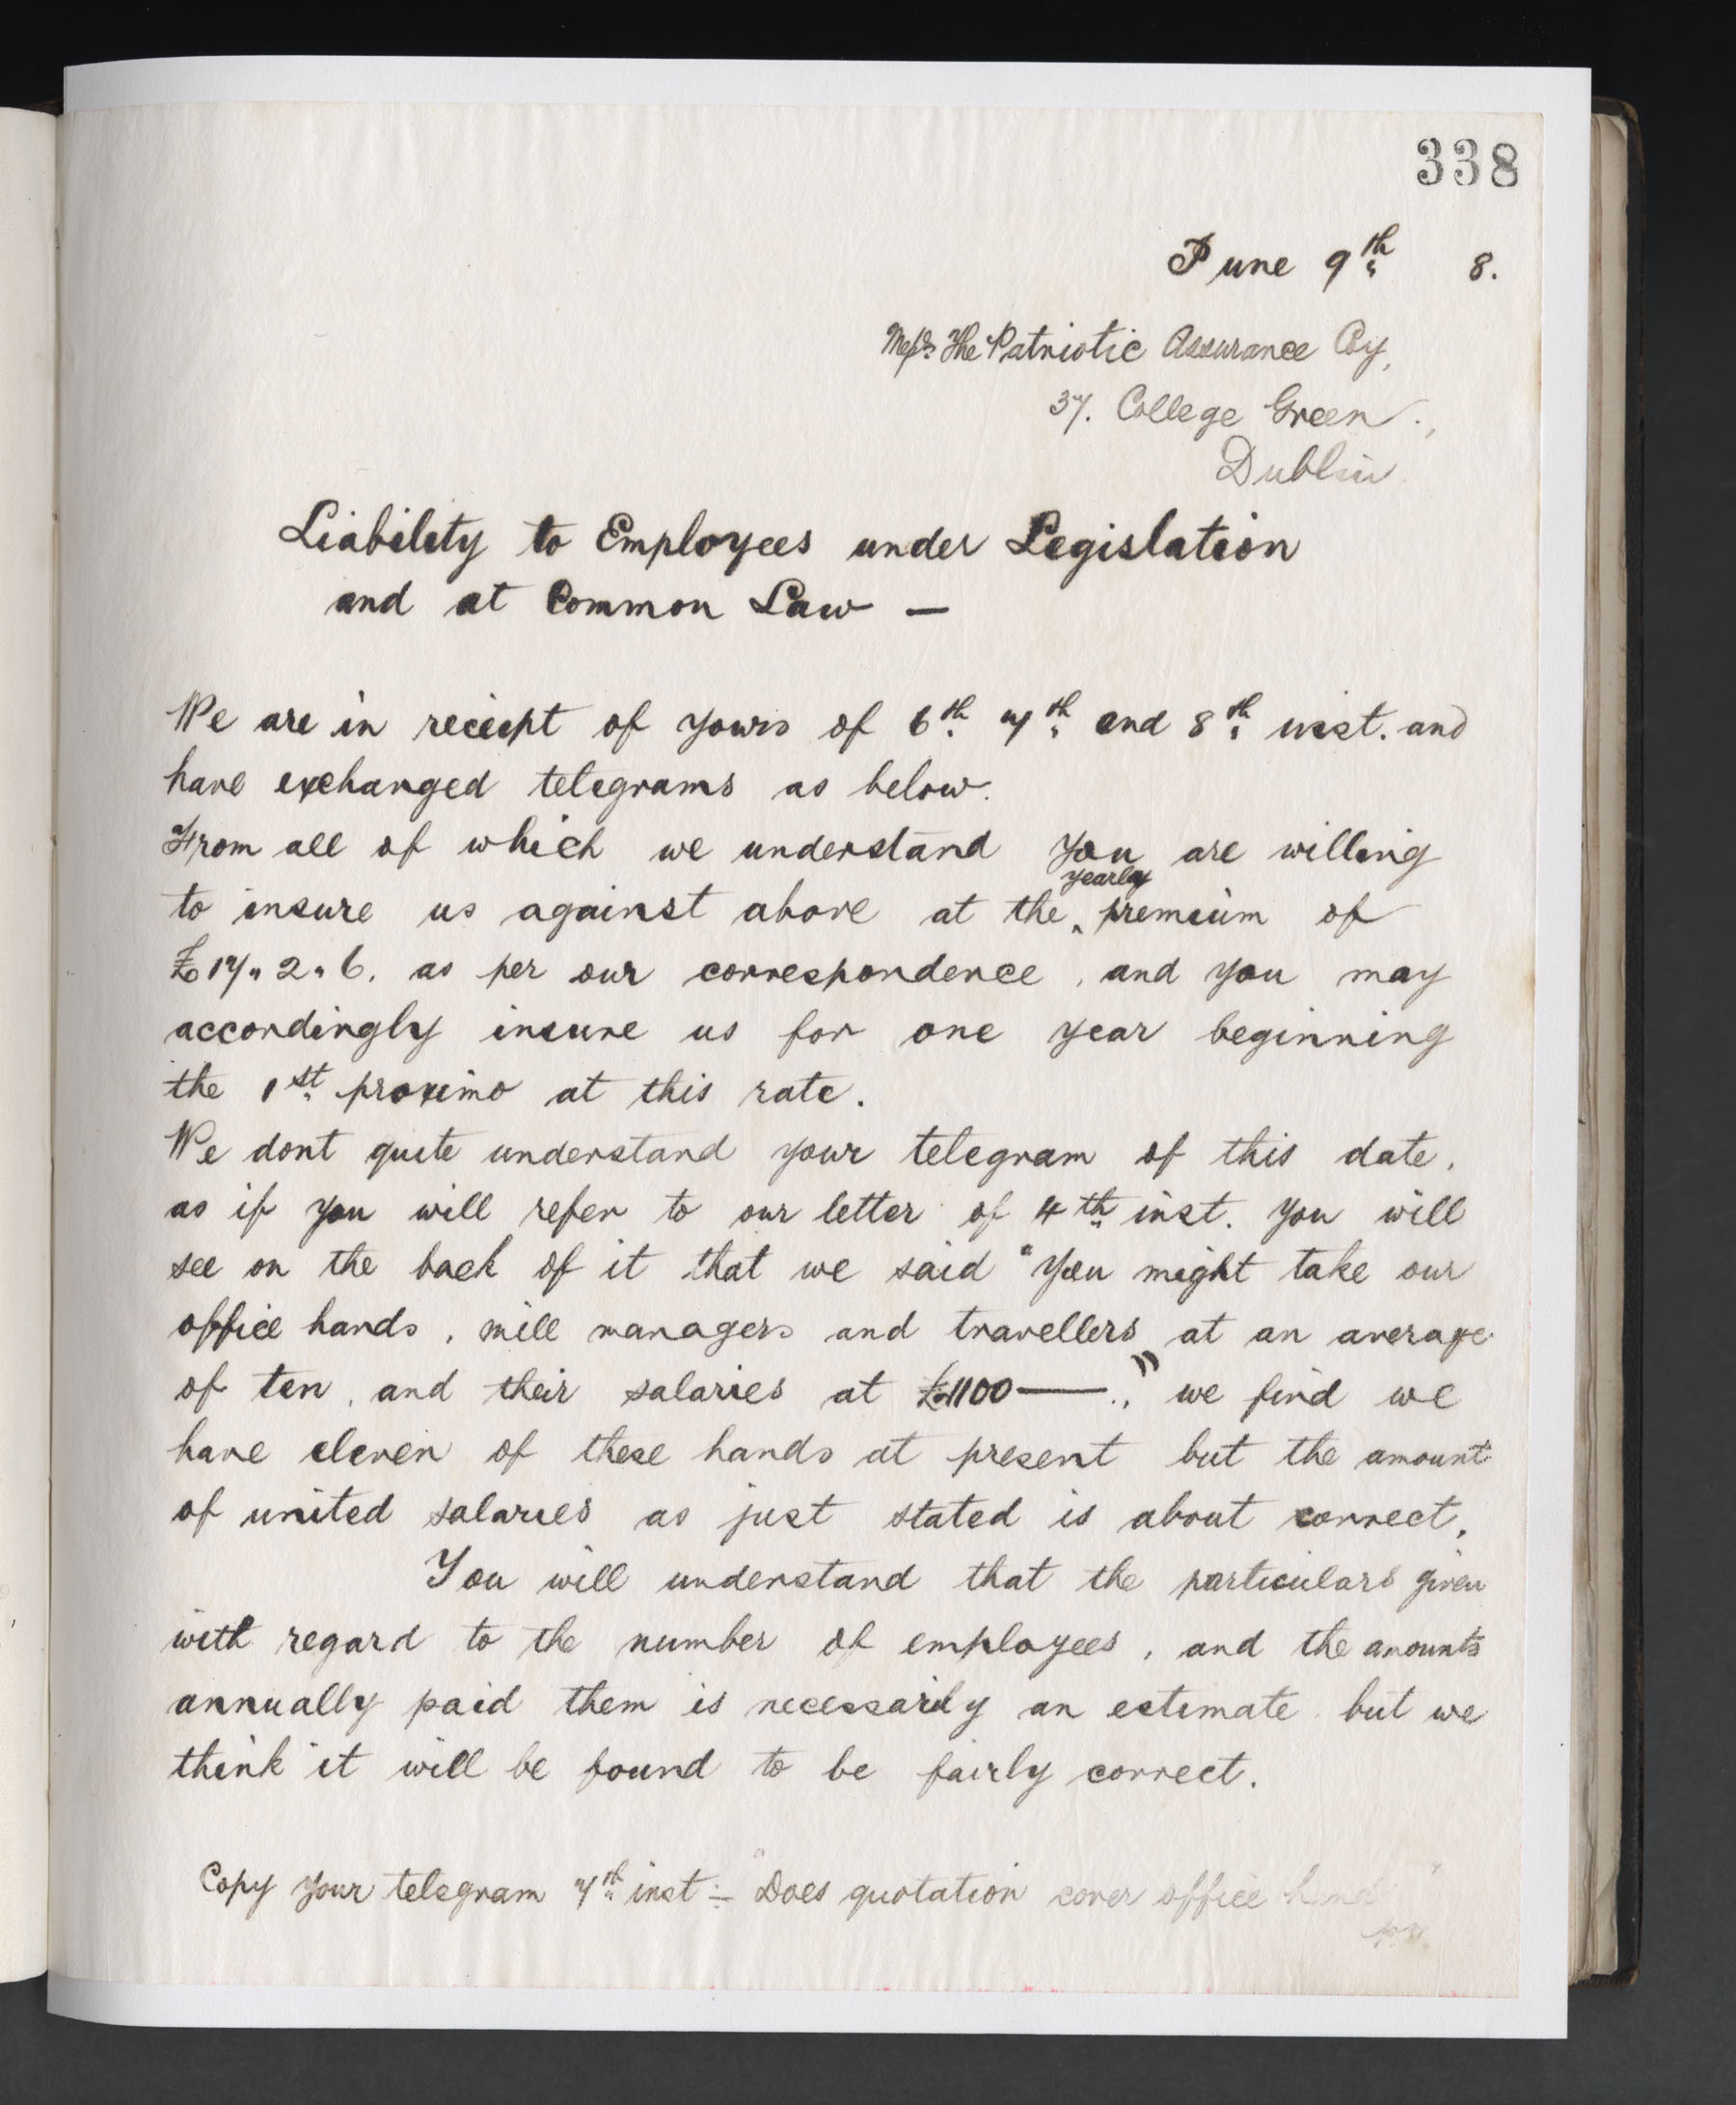 338
June 9th 8.
Messrs. The Patriotic Assurance Coy,
37. College Green.,
Dublin
Liability to Employees under Legislation
and at Common Law —
We are in reciept of yours of 6th 7th and 8th inst. and
have exchanged telegrams as below.
From all of which we understand you are willing
yearly
to insure us against above at the ‸ premium of
£17„2„6. as per our correspondence, and you may
accordingly insure us for one year beginning
the 1st proximo at this rate.
We dont quite understand your telegram of this date,
as if you will refer to our letter of 4th inst. you will
see on the back of it that we said "You might take our
office hands, mill managers and travellers at an average
of ten, and their salaries at £1100 —.," we find we
have eleven of these hands at present but the amount
of united salaries as just stated is about correct.
You will understand that the particulars given
with regard to the number of employees, and the amounts
annually paid them is necessarily an estimate but we
think it will be found to be fairly correct.
Copy your telegram 7th inst :- "Does quotation cover office hands"